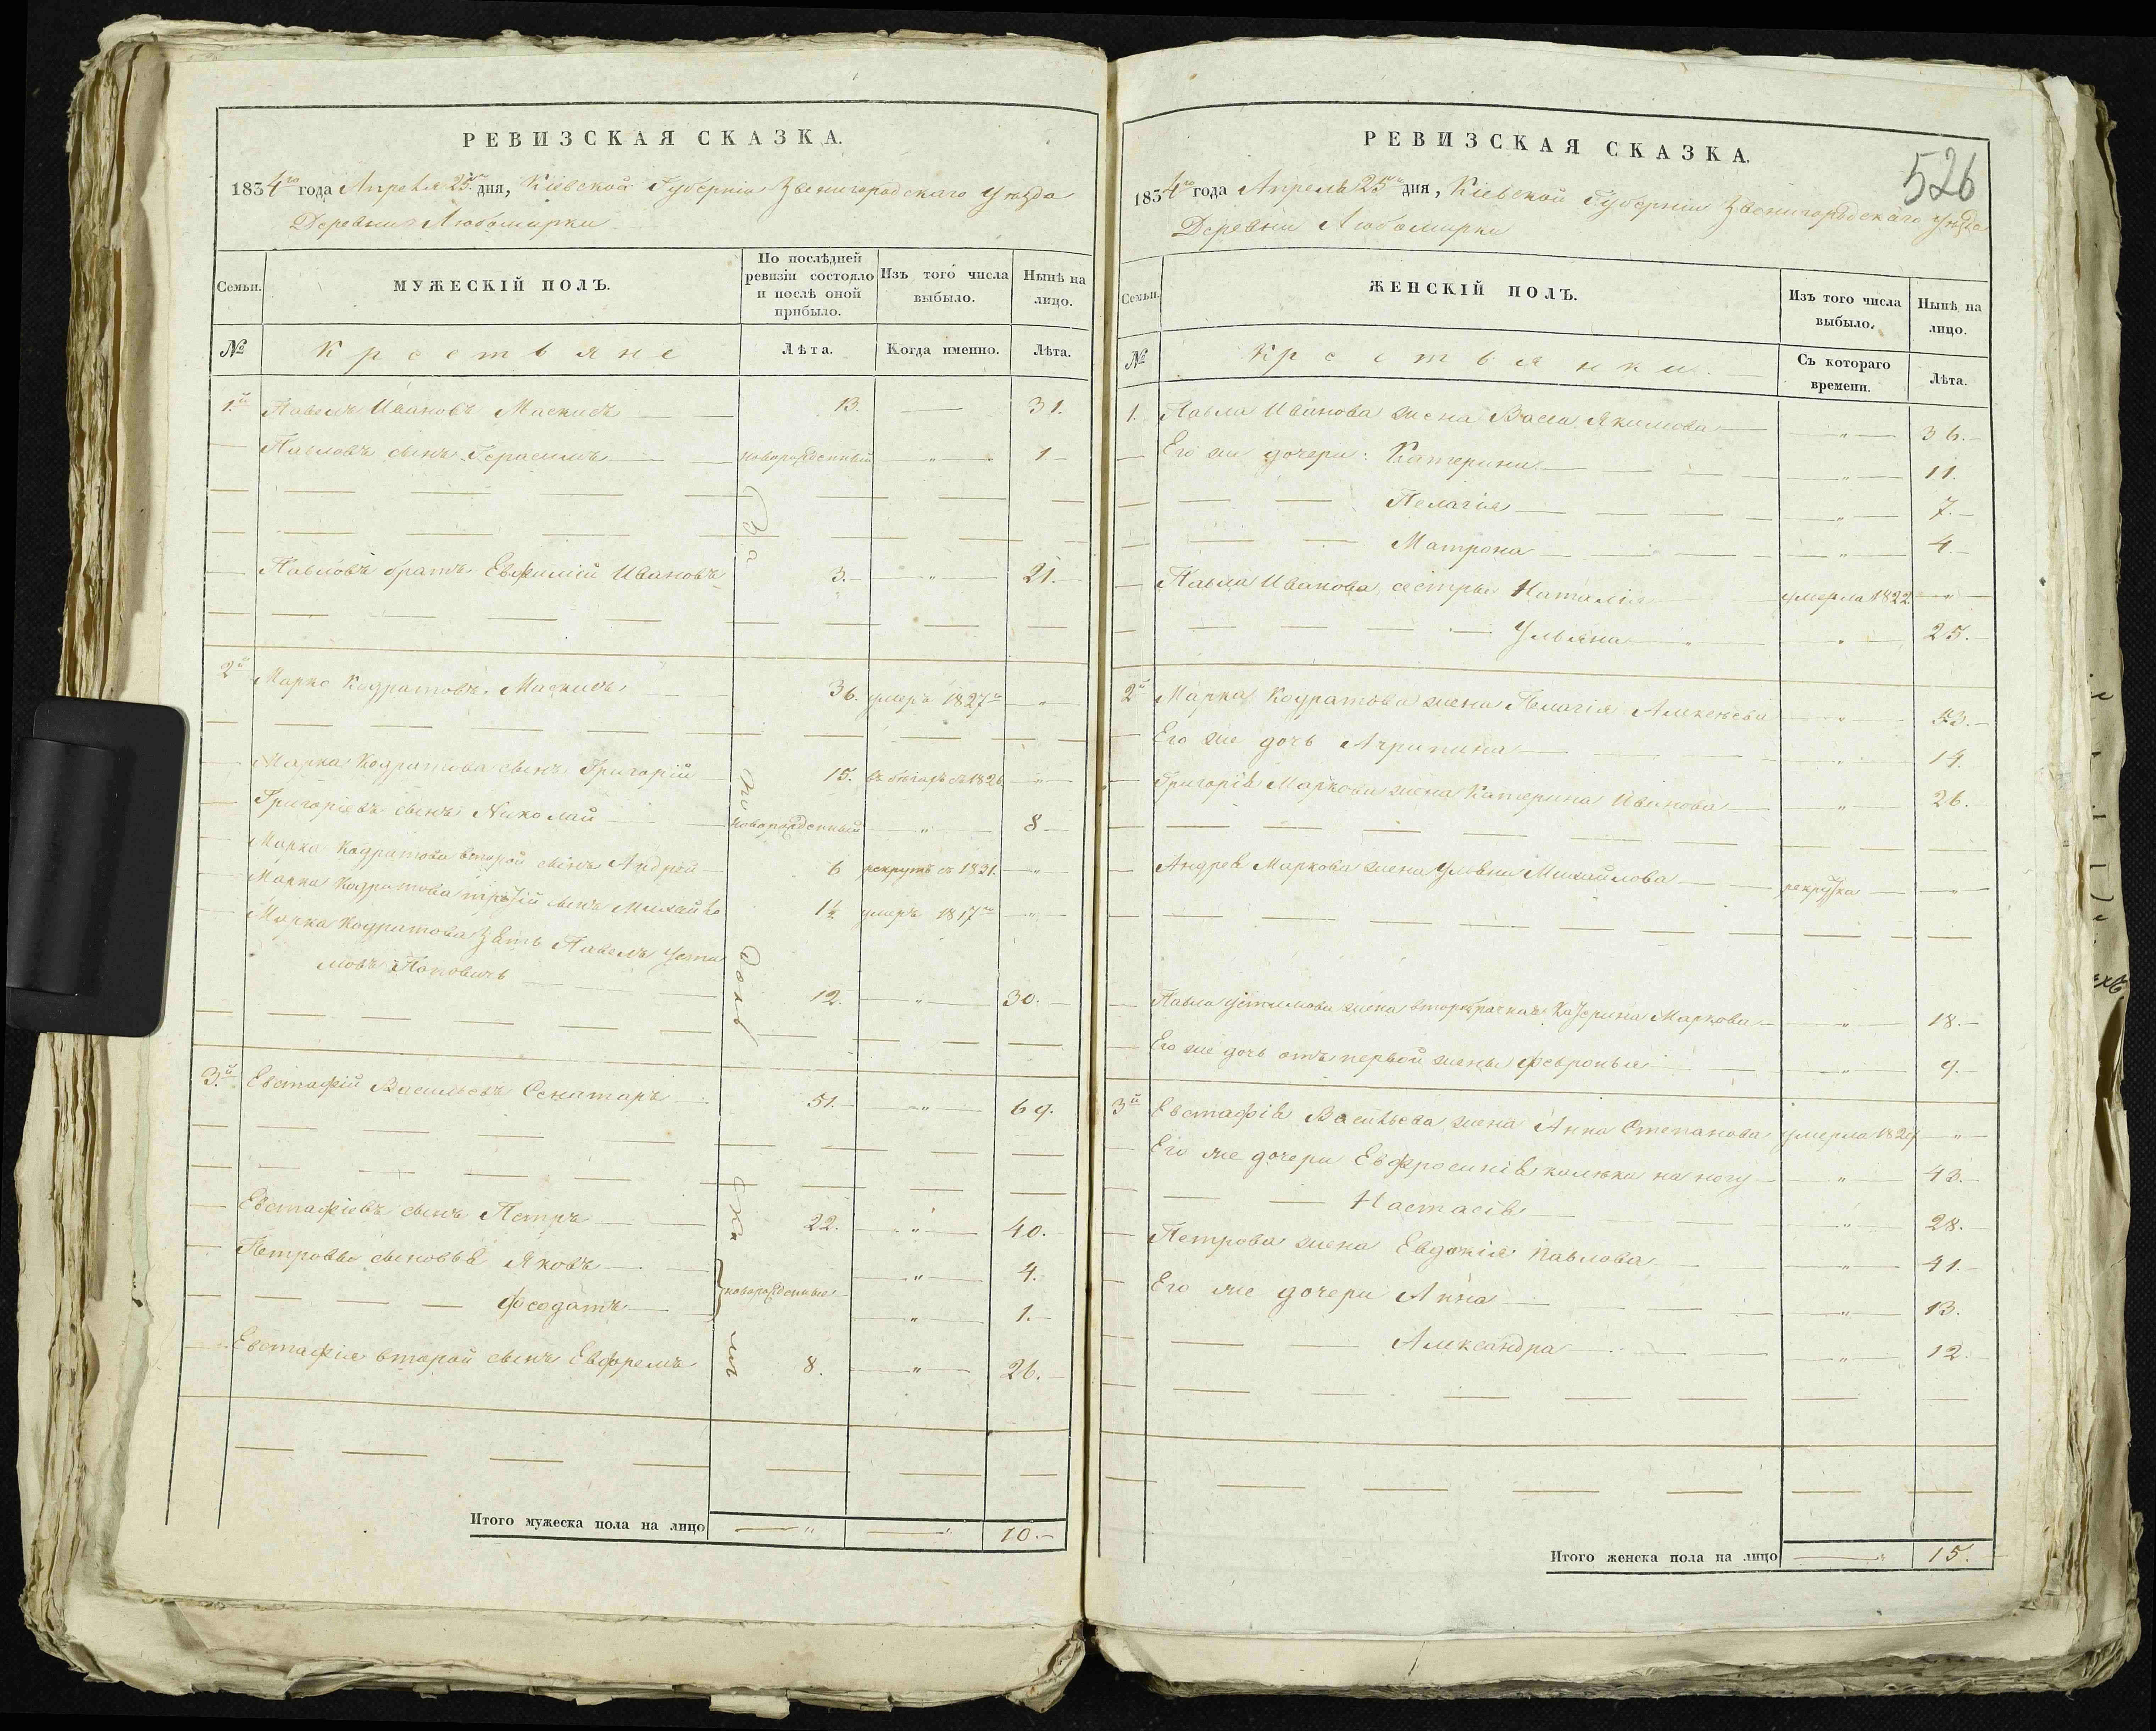 РЕВИЗСКАЯ СКАЗКА.
1834го года Апреля 25го дня, Кіевской Губерніи Звенигородскаго Уѣзда
Деревни Любомирки
Семьи.
МУЖЕСКІЙ ПОЛЪ.
По послѣдней ревизіи состояло и послѣ оной прибыло.
Изъ того числа выбыло.
Нынѣ на лицо.
№
Крестьяне
Лѣта.
Когда именно.
Лѣта.
1й Павелъ Ивановъ 13. 31.
Павловъ сынъ Герасимъ новорожденный " 1
Павловъ братъ Евфимій Ивановъ 3. " 21.
2й Марко Кодратовъ 36. умеръ 1827го "
Марка Кодратова сынъ Григорій 15. въ бѣгахъ съ 1826 "
Григоріевъ сынъ Николай новорожденный " 8
Марка Кодратова второй сынъ Андрей 6 рекрутъ съ 1831. "
Марка Кодратова третій сынъ Михайло 1½ умеръ 1817го "
Марка Кодратова зять Павелъ Усти
мовъ Поповичъ 12. " 30.
3й Евстафій Васильевъ 51. " 69.
Евстафіевъ сынъ Петръ 22. " 40.
Петровы сыновья Яковъ новорожденные " 4.
Феодатъ " 1.
Евстафія второй сынъ Евфремъ 8. " 26.
Итого мужеска пола на лицо " " 10.
РЕВИЗСКАЯ СКАЗКА.
526
1834го года Апреля 25го дня, Кіевской Губерніи Звенигородскаго Уѣзда
Деревни Любомирки
Семьи.
ЖЕНСКІЙ ПОЛЪ.
Изъ того числа выбыло.
Нынѣ на лицо.
№
Крестьянки.
Съ котораго времени.
Лѣта.
1. Павла Иванова жена Васса Якимова " 36.
Его же дочери: Катерина " 11.
Пелагія " 7.
Матрона " 4.
Павла Иванова сестры Наталія умерла 1822 "
Ульяна " 25.
2й Марка Кодратова жена Пелагія Алексѣева " 43.
Его же дочь Агрипина " 14.
Григорія Маркова жена Катерина Иванова " 26.
Андрея Маркова жена Ульяна Михайлова рекрутка "
Павла Устимова жена второбрачная Катерина Маркова " 18.
Его же дочь отъ первой жены Февронья " 9.
3й Евстафія Васильева жена Анна Степанова умерла 1829 "
Его же дочери Евфросинія калѣка на ногу " 43.
Настасія " 28.
Петрова жена Евдокія Павлова " 41.
Его же дочери Анна " 13.
Александра " 12.
Итого женска пола на лицо " 15.